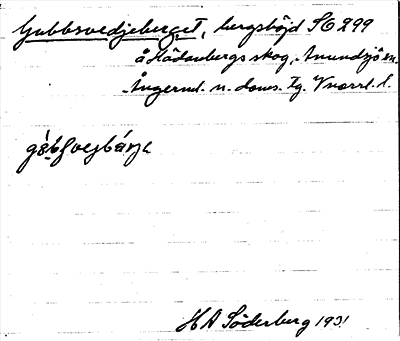 Gubbsvedjeberget, bergshöjd SG 299
å Hädanbergs skog, Anundsjö sn.
Ångerml. n. doms. Tg. Vnorrl. l.
H A Söderberg 1931